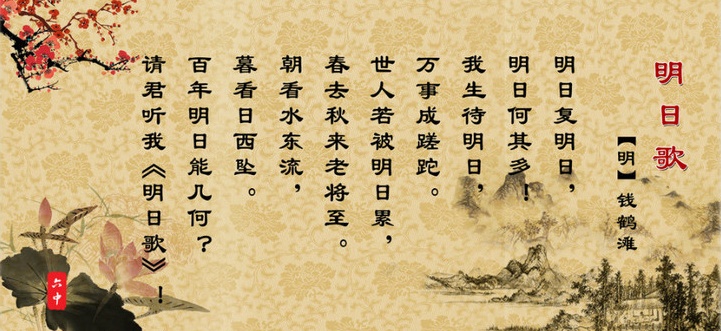 明日歌
【明】钱鹤滩
明日复明日，
明日何其多！
我生待明日，
万事成蹉跎。
世人若被明日累，
春去秋来老将至。
朝看水东流，
暮看日西坠。
百年明日能几何？
请君听我《明日歌》！
六中